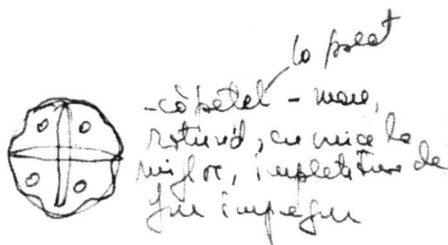 la preot
-căpețel - mare,
rotund, cu nice la
mijloc, împletitură de
jur împrejur